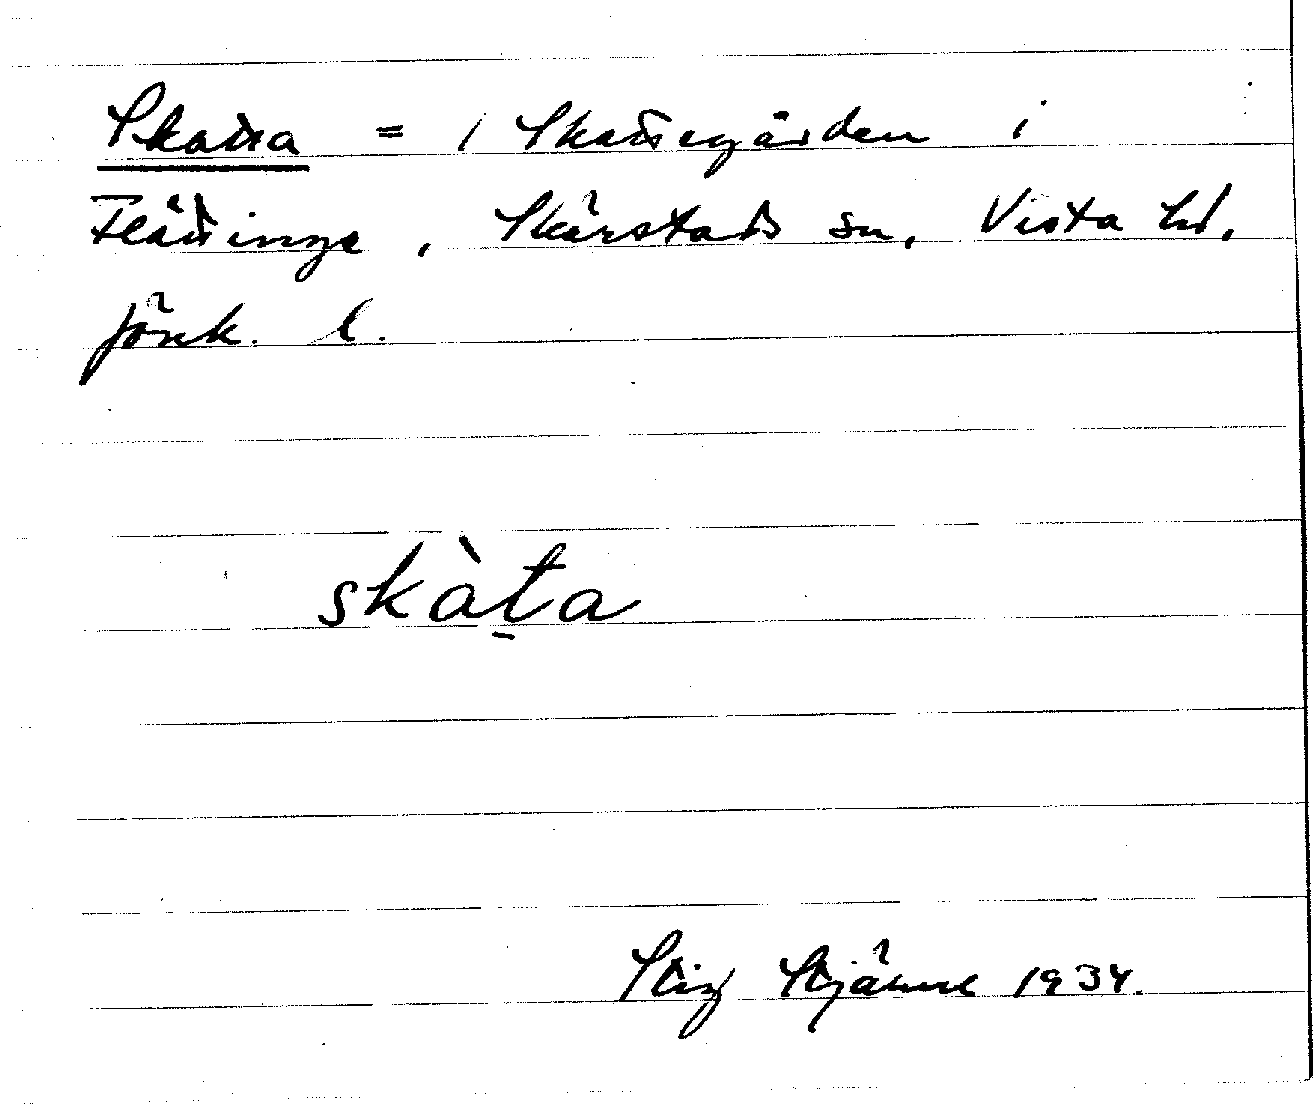 Skatta = Skattegården i
Flättinge, Skärstads sn, Vista hd,
Jönk. l.
skàt̠a
Stig 1934.